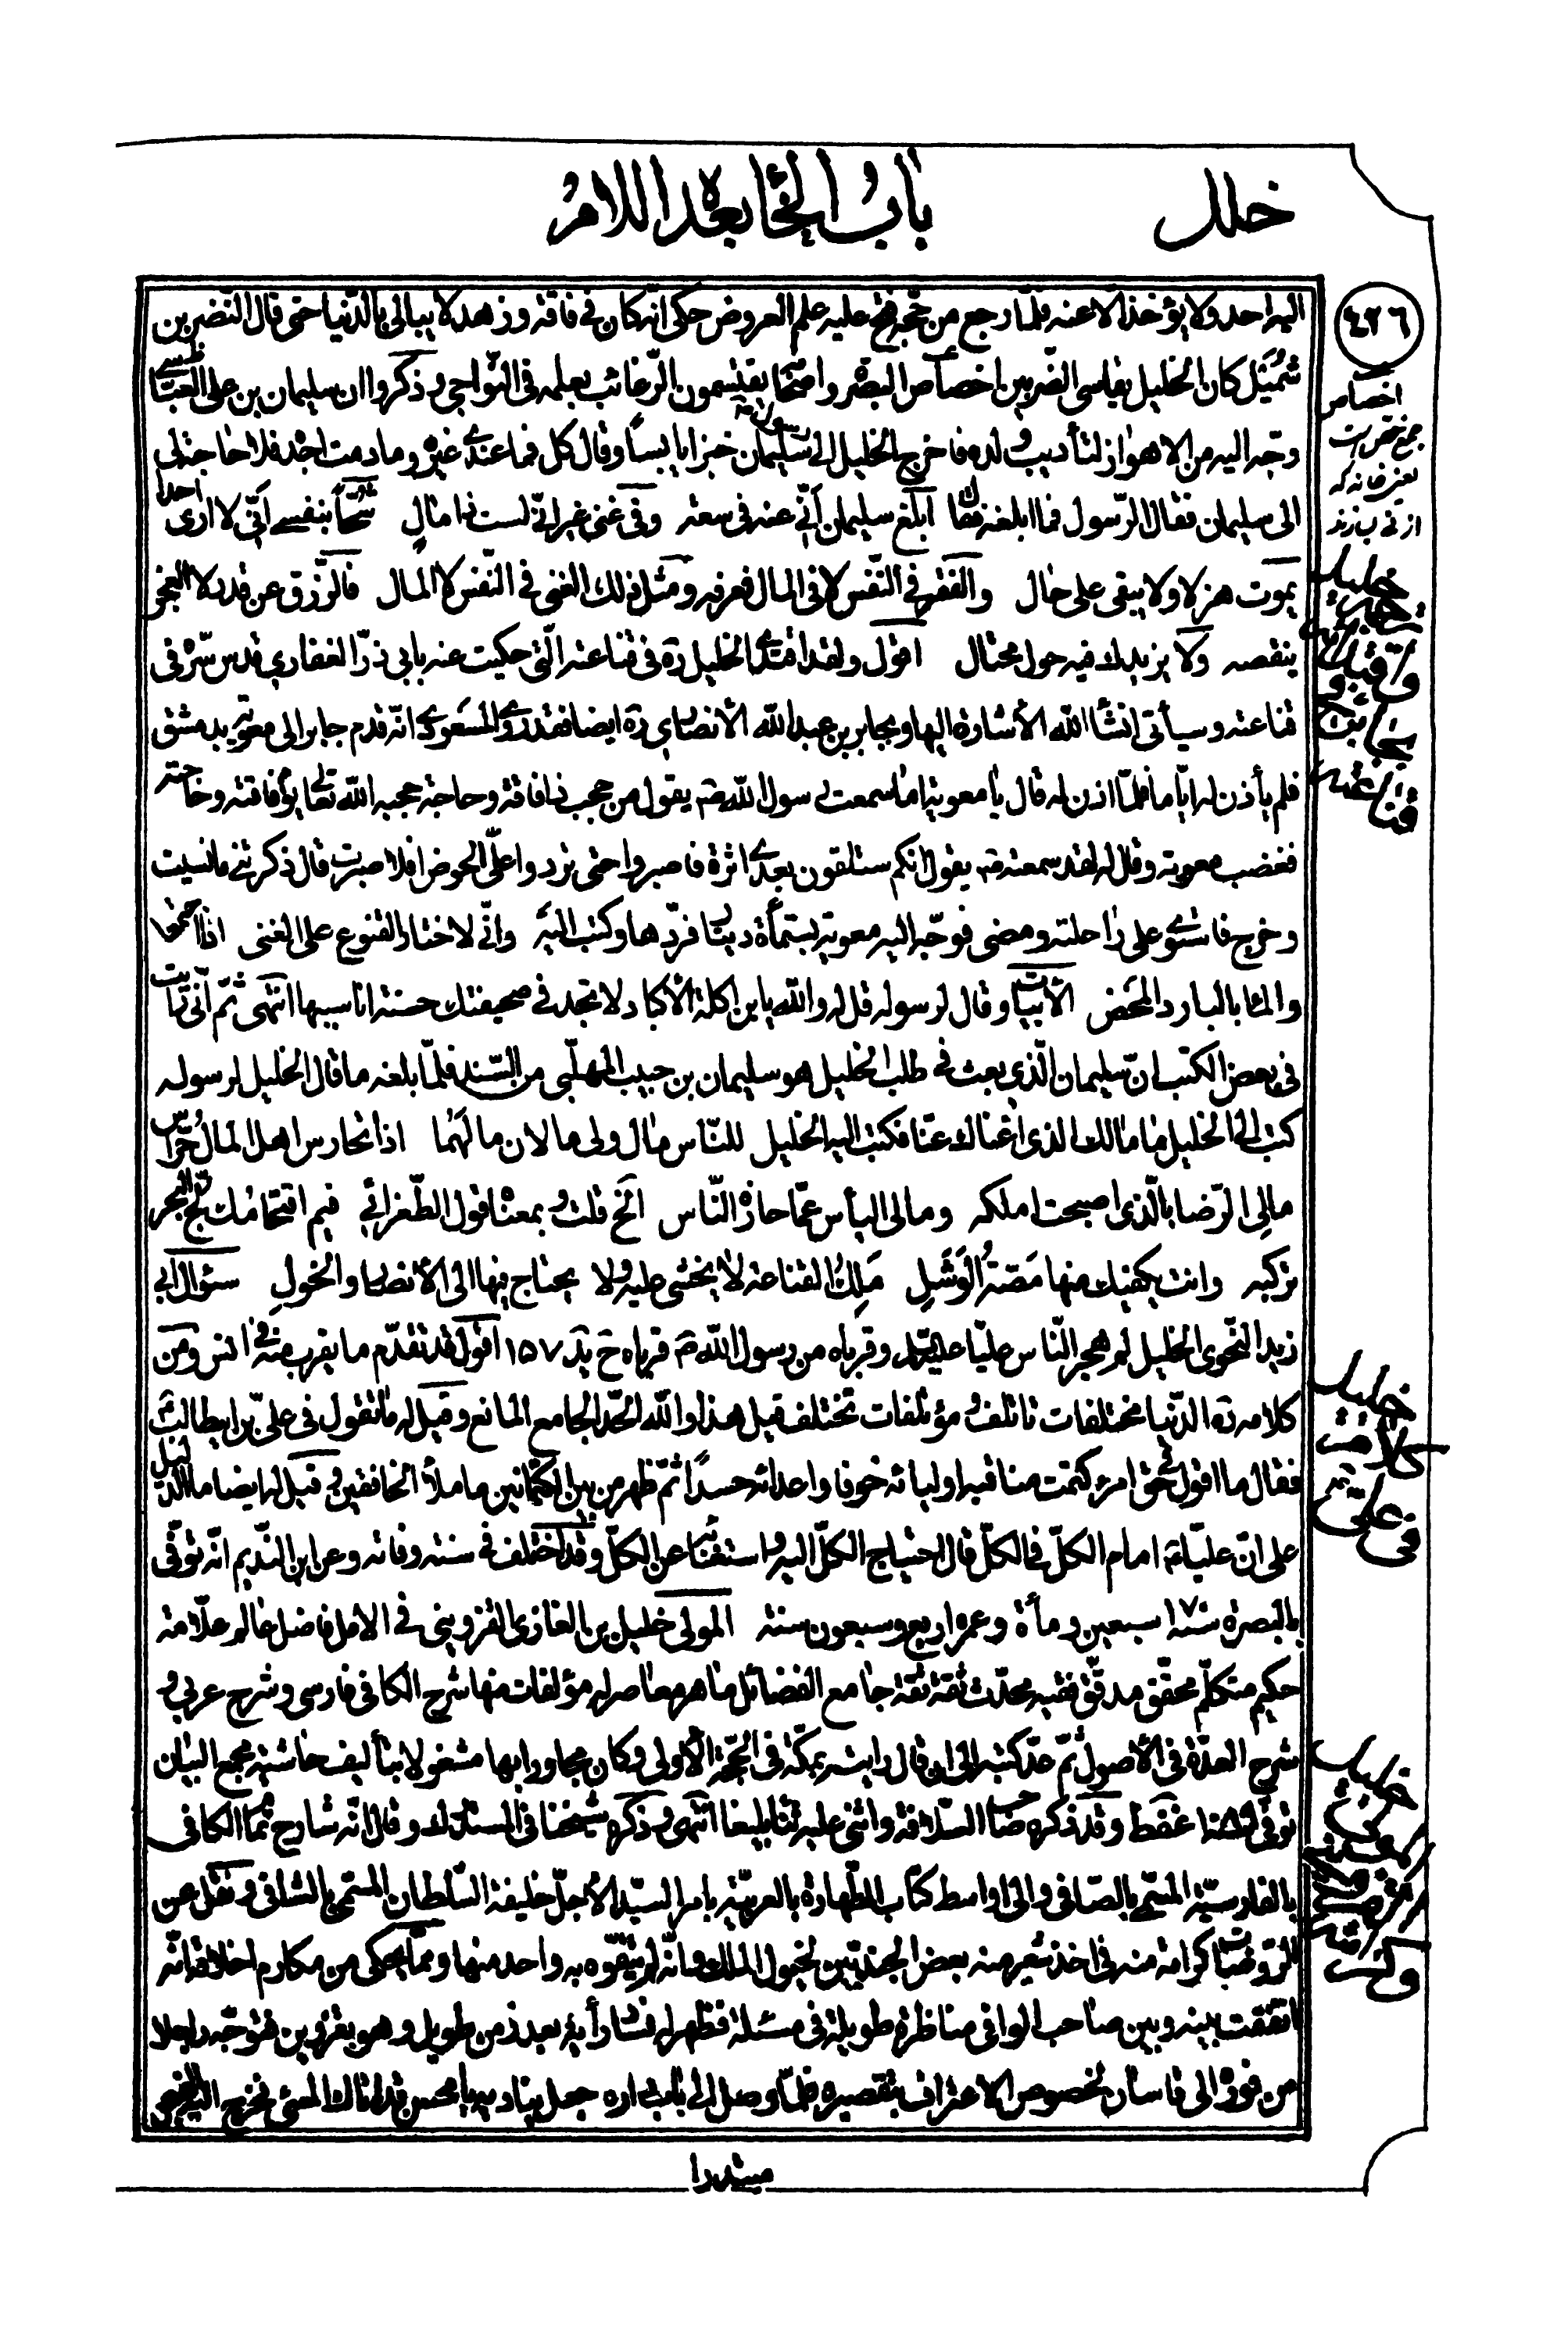 خلل
باب الخاء بعده اللام
٤٢٦
اليه احد ولا يؤخذ الا عنه فلمّا رجع من حجّه فتح عليه علم العروض حكى انّه كان فى فاقة وزهد لا يبالى بالدّنيا حتى قال النّضر بن
شُمَيْل كان الخليل يقاسى الضّرّ بين اخصاص البصرة واصحابه يقتسمون الرّغائب بعلمه فى النّواحى وذكروا ان سليمان بن على العبّاسى
وجّه اليه من الاهواز لتأديب ولده فاخرج الخليل الى رسول سليمان خبزا يابساً وقال كل فما عندى غيره وما دمت اجده فلا حاجة لى
الى سليمان فقال الرّسول فما ابلغه فقال ابلغ سليمان أنّى عنه فى سعة وفى غنى غير انّى لست ذا مال شُحّاً بنفسى انّى لا ارى احدا
يموت هزلا ولا يبقى على حال والفقر فى النّفس لا فى المال فعرفه ومثل ذلك الغنى فى النّفس لا المال فالرّزق عن قدر لا العجز
ينقصه ولا يزيدك فيه حول محتال اقول ولقد اقتدى الخليل ره فى قناعته الّتى حكيت عنه بابى ذرّ الغفارى قدس سّره فى
قناعته وسيأتى انشأ الله الأشارة اليها وبجابر بن عبد الله الأنصارى ره ايضا فقد روى المسعودى انّه قدم جابر الى معوية بدمشق
فلم يأذن له ايّاما فلمّا اذن له قال يا معوية اما سمعت رسول الله ص يقول من حجب ذا فاقة وحاجة حجبه الله تعالى يوم فاقته وحاجته
فغضب معوية وقال له لقد سمعته ص يقول انكم ستلقون بعدى اثرة فاصبروا حتى تردوا علىّ الحوض افلا صبرت قال ذكرتنى ما نسيت
وخرج فاستوى على راحلته ومضى فوجّه اليه معوية بستمأة دينار فردّها وكتب اليه وانّى لاختار القنوع على الغنى اذا اجتمعا
والماء بالبارد المحض الأبيات وقال لرسوله قل له والله يابن اكلة الأكباد لا تجد فى صحيفتك حسنة انا سببها انتهى ثمّ انّى رايت
فى بعض الكتب انّ سليمان الّذى بعث فى طلب الخليل هو سليمان بن حبيب المهلّبى من السّند فلمّا بلغه ما قال الخليل لرسوله
كتب الى الخليل ما مالك الذى اغناك عنّا فكتب اليه الخليل للنّاس مال ولى مالان مالهما اذا تحارس اهل المال حُرّاس
مالى الرّضا بالّذى اصبحت املكه ومالى اليأس عمّا حازه النّاس الخ قلت وبمعناه قول الطّغرائى فيم اقتحامك لجّ البحر
تركبه وانت يكفيك منها مَصّةُ الوَشَلِ مَلِكُ القناعة لا يخشى عليه ولا يحتاج فيها الى الأنصار والخولِ سئوال ابى
زيد النّحوى الخليل لم هجر النّاس عليّا عليه السّلام وقرباه من رسول الله ص قرباه ح يد ١٥٧ اقول قد تقدّم ما يقرب منه فى انس ومن
كلامه ره الدّنيا مختلفات تاتلف ومؤتلفات تختلف قيل هذا والله الحدّ الجامع المانع وقيل له ما تقول فى علىّ بن ابيطالب
فقال ما اقول فى حقّ امرئ كتمت مناقبه اوليائه خوفا واعدائه حسداً ثمّ ظهر من بين الكتمانين ما ملأ الخافقين وقيل له ايضا ما الدّليل
على انّ عليّا ع امام الكلّ فى الكلّ قال احتياج الكلّ اليه واستغنائه عن الكلّ وقد اختلف فى سنة وفاته وعن ابن النّديم انّه توفّى
بالبصرة سنة ١٧٠ سبعين ومأة وعمره اربع وسبعون سنة المولى خليل بن الغازى القزوينى فى الامل فاضل عالم علّامة
حكيم متكلّم محقّق مدقّق فقيه محدّث ثقة ثقة جامع الفضائل ماهر معاصر له مؤلفات منها شرح الكافى فارسى وشرح عربى و
شرح العدّة فى الأصول ثمّ عدّ كتبه الى ان قال رايته بمكّة فى الحجّة الأولى وكان مجاورا بها مشغولا بتأليف حاشية مجمع البيان
توفى ١٠٨٩ غفط وقد ذكره صاحب السّلافة واثنى عليه ثناء بليغا انتهى وذكره شيخنا فى المستدرك وقال انّه شارح تمام الكافى
بالفارسيّة المسمّى بالصّافى والى اواسط كتاب الطّهارة بالعربيّة بامر السيّد الأجلّ خليفة السّلطان المسمّى بالشافى ونقل عن
الرّوضات كرامة منه فى اخذ شعير منه بعض الجنديّين لخيول الملك وانّه لم يتفوّه به واحد منها وممّا يحكى من مكارم اخلاقه انّه
اتّفقت بينه وبين صاحب الوافى مناظرة طويلة فى مسئلة فظهر له فساد رأيه بعد زمن طويل وهو بقزوين فتوجّه راجلا
من فوره الى قاسان لخصوص الاعتراف بتقصيره فلمّا وصل الى باب داره جعل يناديه يا محسن قد اتاك المسئ فخرج اليه الفيض
مبتدرا
اخصاص
جمع خص است
يعنى خانه كه
از نى سازند
خليل
وقناعته
خليل
كلامه
فى علىّ ع
خليل
بن
القزوينى
وكرامته